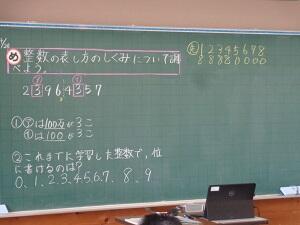 め 整数の表し方のしくみについて調
べよう。
ア イ
23964357
① アは100万が3こ
イは100が3こ
② これまでに学習した整数で、位
に書けるのは?
0、1、2、3、4、5、6、7、8、9
12345678
88880000